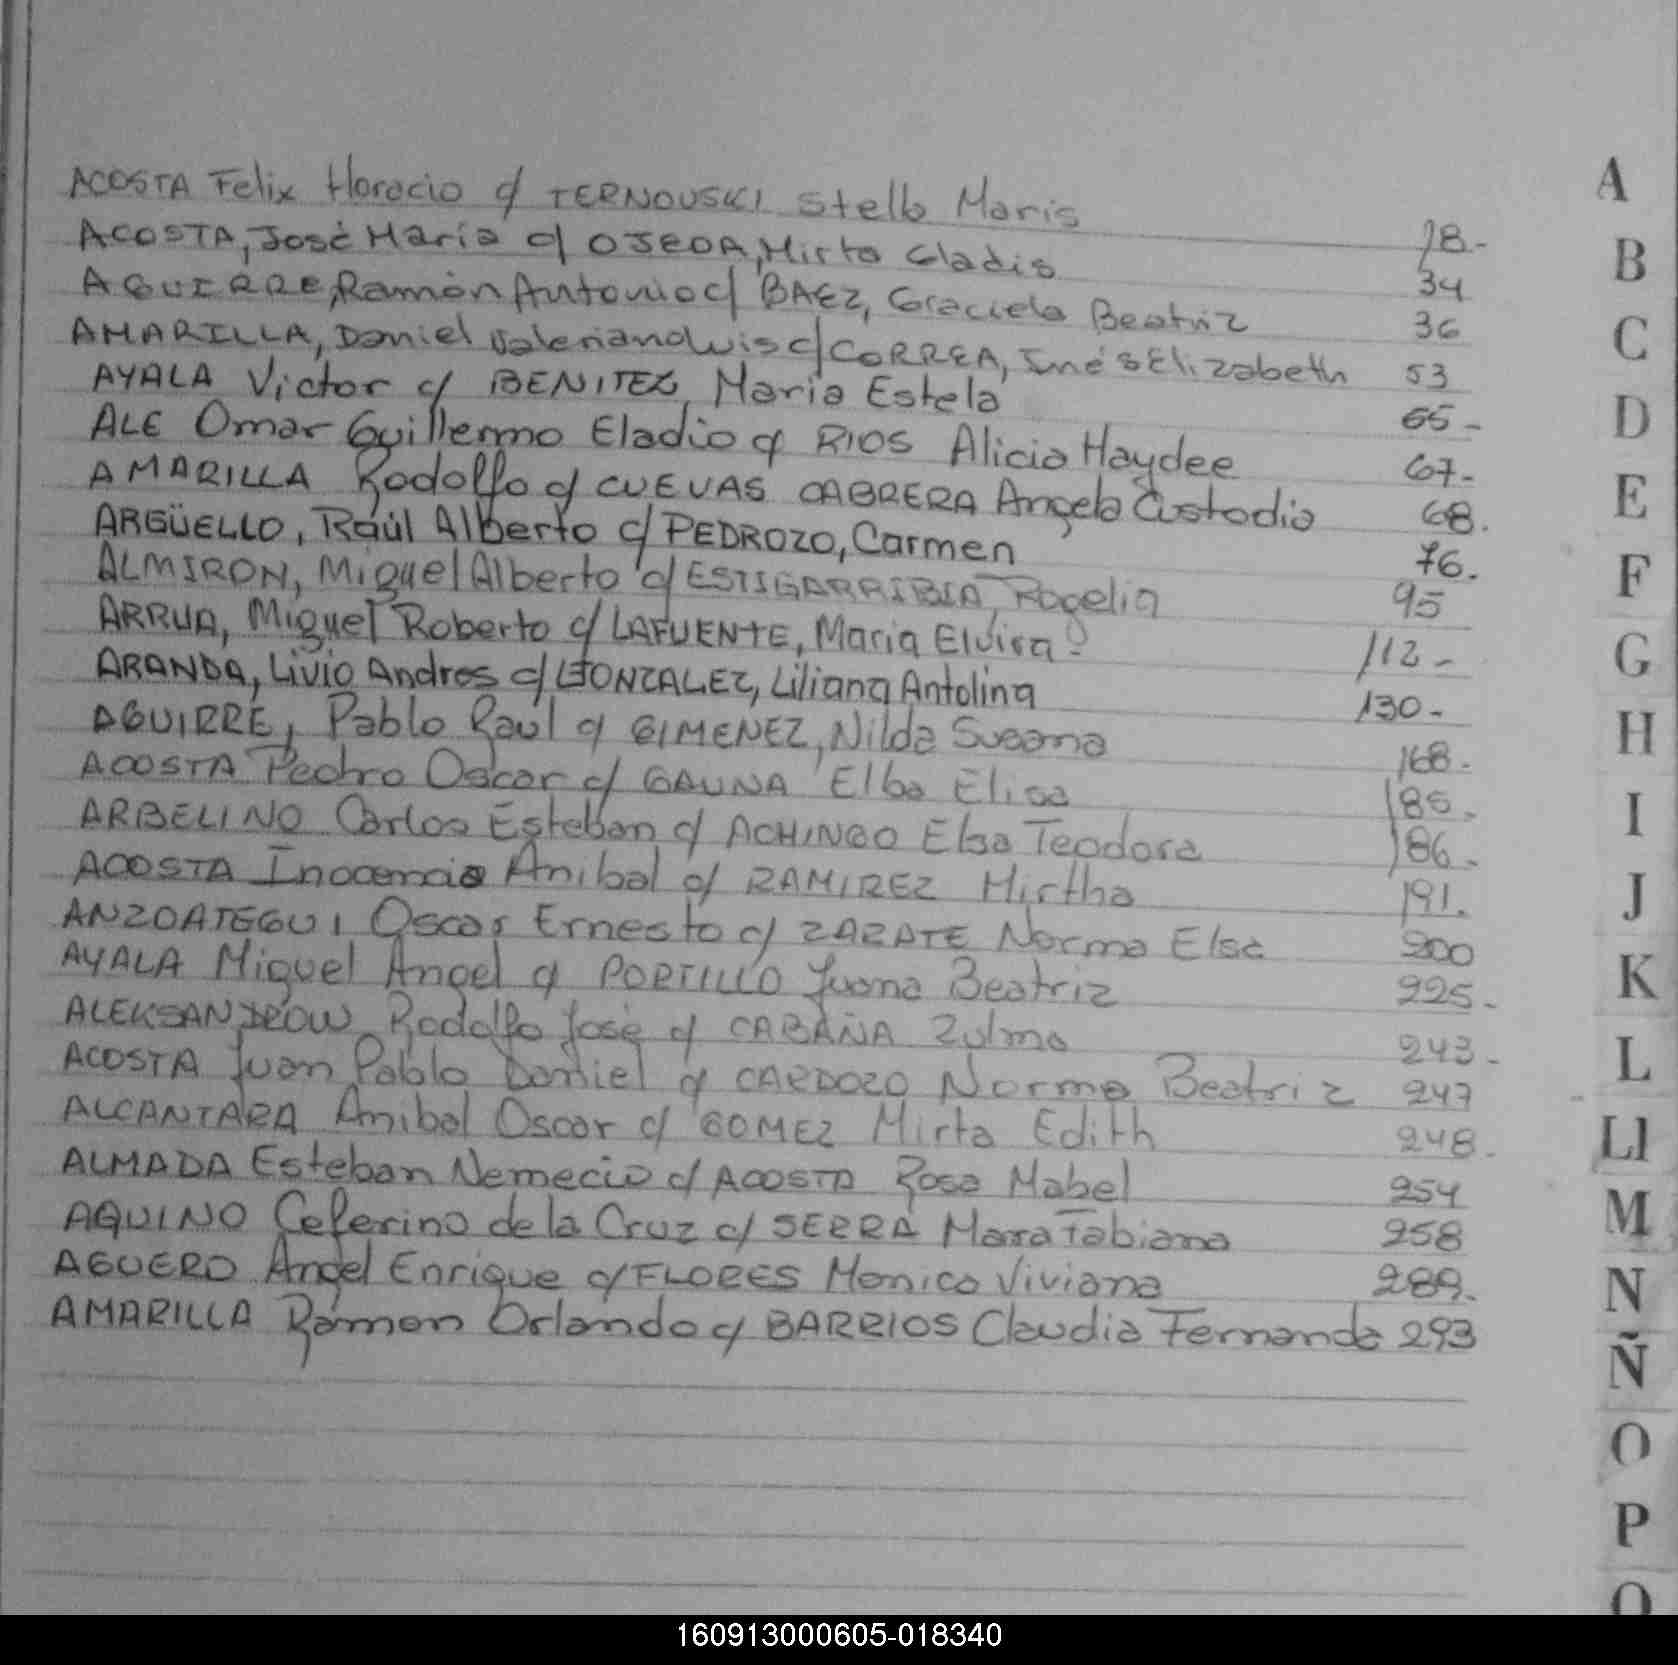 ACOSTA Felix Horacio c/ TERNOUSKI Stella Maris 18.-
ACOSTA, José Maria c/ OJEDA, Mirta Gladis 34
AGUIRRE, Ramón Antonio c/ BAEZ, Graciela Beatriz 36
AMARILLA, Daniel Valeriano Luis c/ CORREA, Inés Elizabeth 53
AYALA Victor c/ BENITEZ, Maria Estela 65-
ALE Omar Guillermo Eladio c/ RIOS Alicia Haydee 67.-
AMARILLA Rodolfo c/ CUEVAS CABRERA Angela Custodia 68.
ARGÜELLO, Raúl Alberto c/ PEDROZO, Carmen 76.
ALMIRON, Miguel Alberto c/ ESTIGARRIBIA, Rogelia 95
ARRUA, Miguel Roberto c/ LAFUENTE, Maria Elvira- 112-
ARANDA, Livio Andres c/ GONZALEZ, Liliana Antolina 130-
AGUIRRE, Pablo Raul c/ GIMENEZ, Nilda Susana 168-
ACOSTA Pedro Oscar c/ GAUNA Elba Elisa 185.
ARBELINO Carlos Esteban c/ ACHINGO Elsa Teodora 186-
ACOSTA Inocencio Anibal c/ RAMIREZ Mirtha 191.
ANZOATEGUI Oscar Ernesto c/ ZARATE Norma Elsa 200
AYALA Miguel Angel c/ PORTILLO Juana Beatriz 225-
ALEKSANDROW Rodolfo José c/ CABAÑA Zulma 243-
ACOSTA Juan Pablo Daniel c/ CARDOZO Norma Beatriz 247
ALCANTARA Anibal Oscar c/ GOMEZ Mirta Edith 248.
ALMADA Esteban Nemecio c/ ACOSTA Rosa Mabel 254
AQUINO Ceferino de la Cruz c/ SERRA Mara Fabiana 258
AGUERO Angel Enrique c/ FLORES Monica Viviana 289.
AMARILLA Ramon Orlando c/ BARRIOS Claudia Fernanda 293
A
B
C
D
E
F
G
H
I
J
K
L
Ll
M
N
Ñ
O
P
160913000605-018340